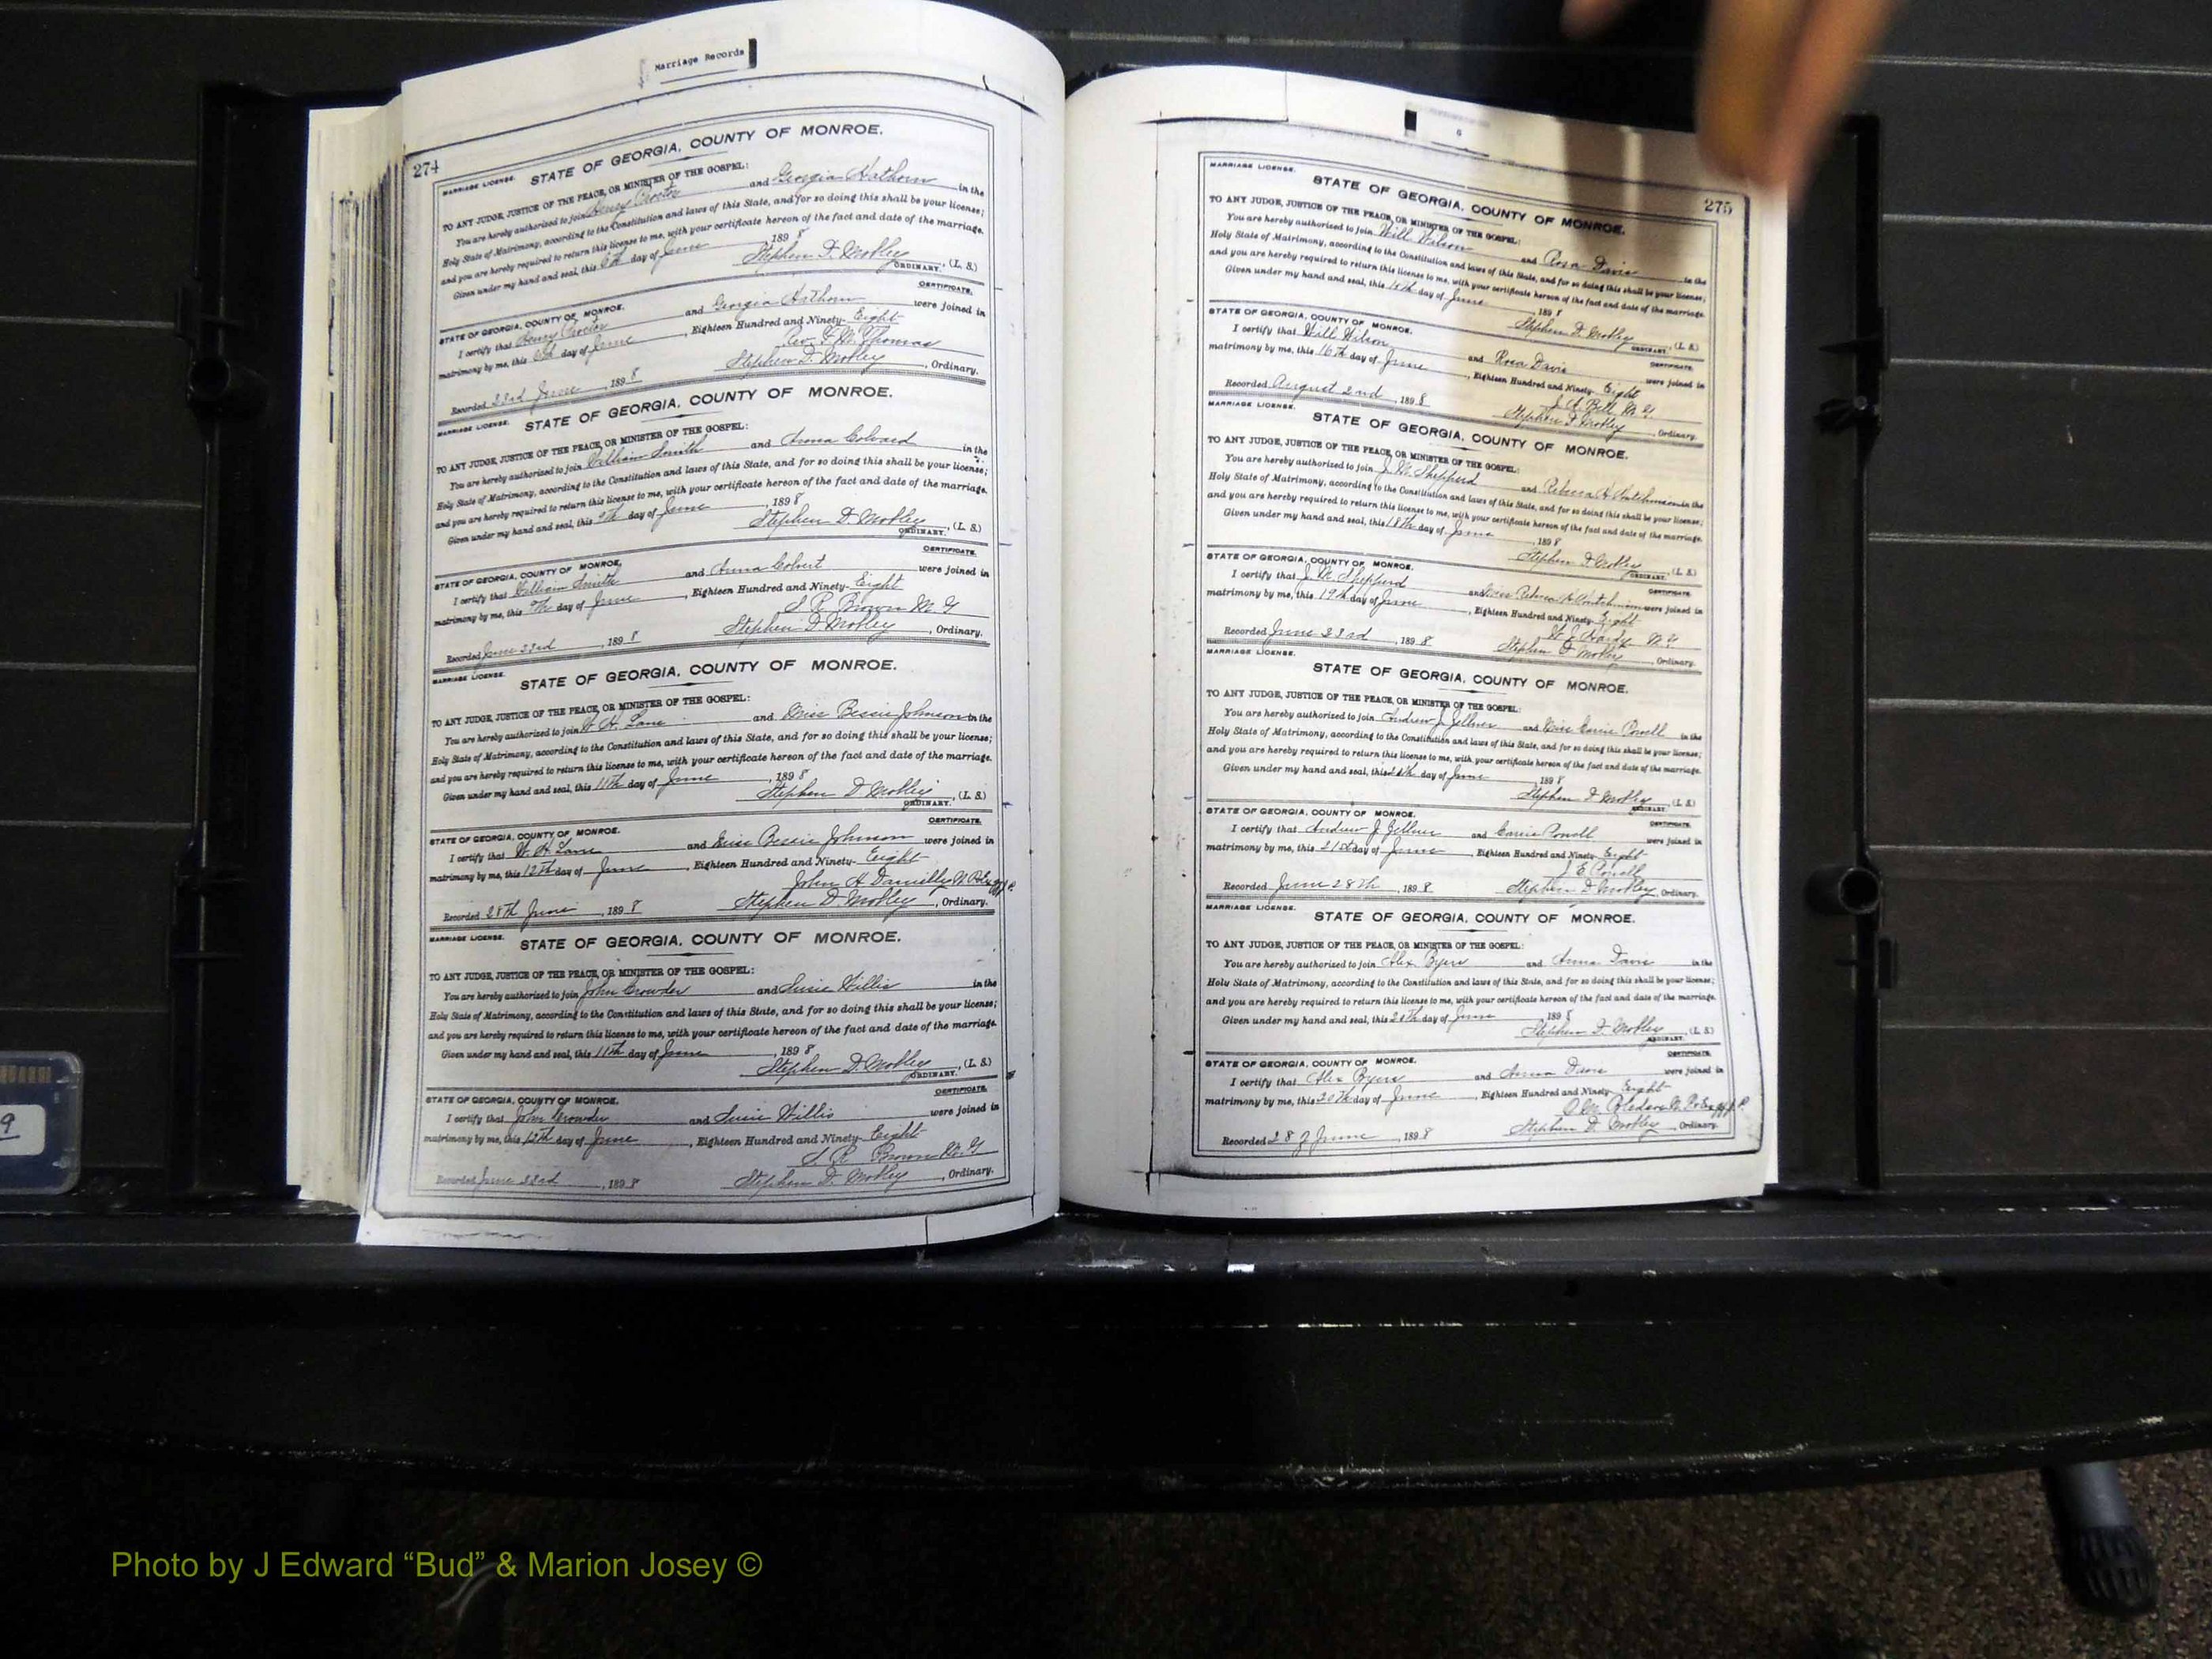 Marriage Records
274
MARRIAGE LICENSE.
STATE OF GEORGIA, COUNTY OF MONROE.
TO ANY JUDGE, JUSTICE OF THE PEACE, OR MINISTER OF THE GOSPEL:
You are hereby authorized to join Henry Proctor and Georgia Hathorn in the
Holy State of Matrimony, according to the Constitution and laws of this State, and for so doing this shall be your license;
and you are hereby required to return this license to me, with your certificate hereon of the fact and date of the marriage.
Given under my hand and seal, this 6th day of June, 1898
Stephen D. Mobley, (L. S.)
ORDINARY.
CERTIFICATE.
STATE OF GEORGIA, COUNTY OF MONROE.
I certify that Henry Proctor and Georgia Hathorn were joined in
matrimony by me, this day of June, Eighteen Hundred and Ninety-Eight
Rev. Thomas
Recorded 23rd June, 1898 Stephen D. Mobley, Ordinary.
MARRIAGE LICENSE.
STATE OF GEORGIA, COUNTY OF MONROE.
TO ANY JUDGE, JUSTICE OF THE PEACE, OR MINISTER OF THE GOSPEL:
You are hereby authorized to join William Smith and Anna Colvard in the
Holy State of Matrimony, according to the Constitution and laws of this State, and for so doing this shall be your license;
and you are hereby required to return this license to me, with your certificate hereon of the fact and date of the marriage.
Given under my hand and seal, this 9th day of June, 1898
Stephen D. Mobley, (L. S.)
ORDINARY.
CERTIFICATE.
STATE OF GEORGIA, COUNTY OF MONROE.
I certify that William Smith and Anna Colvert were joined in
matrimony by me, this 9th day of June, Eighteen Hundred and Ninety-Eight
S. R. Brown M. G
Recorded June 23rd, 1898 Stephen D. Mobley, Ordinary.
MARRIAGE LICENSE.
STATE OF GEORGIA, COUNTY OF MONROE.
TO ANY JUDGE, JUSTICE OF THE PEACE, OR MINISTER OF THE GOSPEL:
You are hereby authorized to join W. H. Lane and Miss Bessie Johnson in the
Holy State of Matrimony, according to the Constitution and laws of this State, and for so doing this shall be your license;
and you are hereby required to return this license to me, with your certificate hereon of the fact and date of the marriage.
Given under my hand and seal, this 11th day of June, 1898
Stephen D Mobley, (L. S.)
ORDINARY.
CERTIFICATE.
STATE OF GEORGIA, COUNTY OF MONROE.
I certify that W. H. Lane and Miss Bessie Johnson were joined in
matrimony by me, this 12th day of June, Eighteen Hundred and Ninety-Eight
John H Danielly
Recorded 28th June, 1898 Stephen D. Mobley, Ordinary.
MARRIAGE LICENSE.
STATE OF GEORGIA, COUNTY OF MONROE.
TO ANY JUDGE, JUSTICE OF THE PEACE, OR MINISTER OF THE GOSPEL:
You are hereby authorized to join John Crowder and Susie Willis in the
Holy State of Matrimony, according to the Constitution and laws of this State, and for so doing this shall be your license;
and you are hereby required to return this license to me, with your certificate hereon of the fact and date of the marriage.
Given under my hand and seal, this 11th day of June, 1898
Stephen D. Mobley, (L. S.)
ORDINARY.
CERTIFICATE.
STATE OF GEORGIA, COUNTY OF MONROE.
I certify that John Crowder and Susie Willis were joined in
matrimony by me, this 12th day of June, Eighteen Hundred and Ninety-Eight
S. R. Brown M. G
Recorded June 23rd, 1898 Stephen D. Mobley, Ordinary.
275
MARRIAGE LICENSE.
STATE OF GEORGIA, COUNTY OF MONROE.
TO ANY JUDGE, JUSTICE OF THE PEACE, OR MINISTER OF THE GOSPEL:
You are hereby authorized to join Will Wilson and Rosa Davis in the
Holy State of Matrimony, according to the Constitution and laws of this State, and for so doing this shall be your license;
and you are hereby required to return this license to me, with your certificate hereon of the fact and date of the marriage.
Given under my hand and seal, this day of June, 1898
Stephen D. Mobley, (L. S.)
ORDINARY.
CERTIFICATE.
STATE OF GEORGIA, COUNTY OF MONROE.
I certify that Will Wilson and Rosa Davis were joined in
matrimony by me, this 16th day of June, Eighteen Hundred and Ninety-Eight
Bell, M. G.
Recorded August 2nd, 1898 Stephen D Mobley, Ordinary.
MARRIAGE LICENSE.
STATE OF GEORGIA, COUNTY OF MONROE.
TO ANY JUDGE, JUSTICE OF THE PEACE, OR MINISTER OF THE GOSPEL:
You are hereby authorized to join J. W. Shepperd and Rebecca A Hutchinson in the
Holy State of Matrimony, according to the Constitution and laws of this State, and for so doing this shall be your license;
and you are hereby required to return this license to me, with your certificate hereon of the fact and date of the marriage.
Given under my hand and seal, this 18th day of June, 1898
Stephen D Mobley, (L. S.)
ORDINARY.
CERTIFICATE.
STATE OF GEORGIA, COUNTY OF MONROE.
I certify that J. W. Shepperd and Miss Rebecca A Hutchinson were joined in
matrimony by me, this 19th day of June, Eighteen Hundred and Ninety-Eight
Hardy M. G.
Recorded June 23rd, 1898 Stephen D Mobley, Ordinary.
MARRIAGE LICENSE.
STATE OF GEORGIA, COUNTY OF MONROE.
TO ANY JUDGE, JUSTICE OF THE PEACE, OR MINISTER OF THE GOSPEL:
You are hereby authorized to join Andrew J Zellner and Miss Carrie Powell in the
Holy State of Matrimony, according to the Constitution and laws of this State, and for so doing this shall be your license;
and you are hereby required to return this license to me, with your certificate hereon of the fact and date of the marriage.
Given under my hand and seal, this day of June, 1898
Stephen D Mobley, (L. S.)
ORDINARY.
CERTIFICATE.
STATE OF GEORGIA, COUNTY OF MONROE.
I certify that Andrew J Zellner and Carrie Powell were joined in
matrimony by me, this 21st day of June, Eighteen Hundred and Ninety-Eight
J E Powell
Recorded June 28th, 1898 Stephen D Mobley, Ordinary.
MARRIAGE LICENSE.
STATE OF GEORGIA, COUNTY OF MONROE.
TO ANY JUDGE, JUSTICE OF THE PEACE, OR MINISTER OF THE GOSPEL:
You are hereby authorized to join Alex Byers and Anna Davis in the
Holy State of Matrimony, according to the Constitution and laws of this State, and for so doing this shall be your license;
and you are hereby required to return this license to me, with your certificate hereon of the fact and date of the marriage.
Given under my hand and seal, this 20th day of June, 1898
Stephen D. Mobley, (L. S.)
ORDINARY.
CERTIFICATE.
STATE OF GEORGIA, COUNTY OF MONROE.
I certify that Alex Byers and Anna Davis were joined in
matrimony by me, this 20th day of June, Eighteen Hundred and Ninety-Eight
Recorded 28 June, 1898 Stephen D. Mobley, Ordinary.
9
Photo by J Edward “Bud” & Marion Josey ©